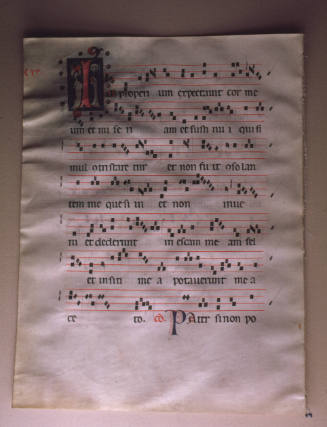 I mproperi um expectavit cor me
um et mi se ri am et sustinui qui si
mul contristare tur et non fu it conso lan
tem me que si vi et non inve
ni et dederunt in escam me am fel
et in siti me a potaverunt me a
ce to. co. Pater si non po